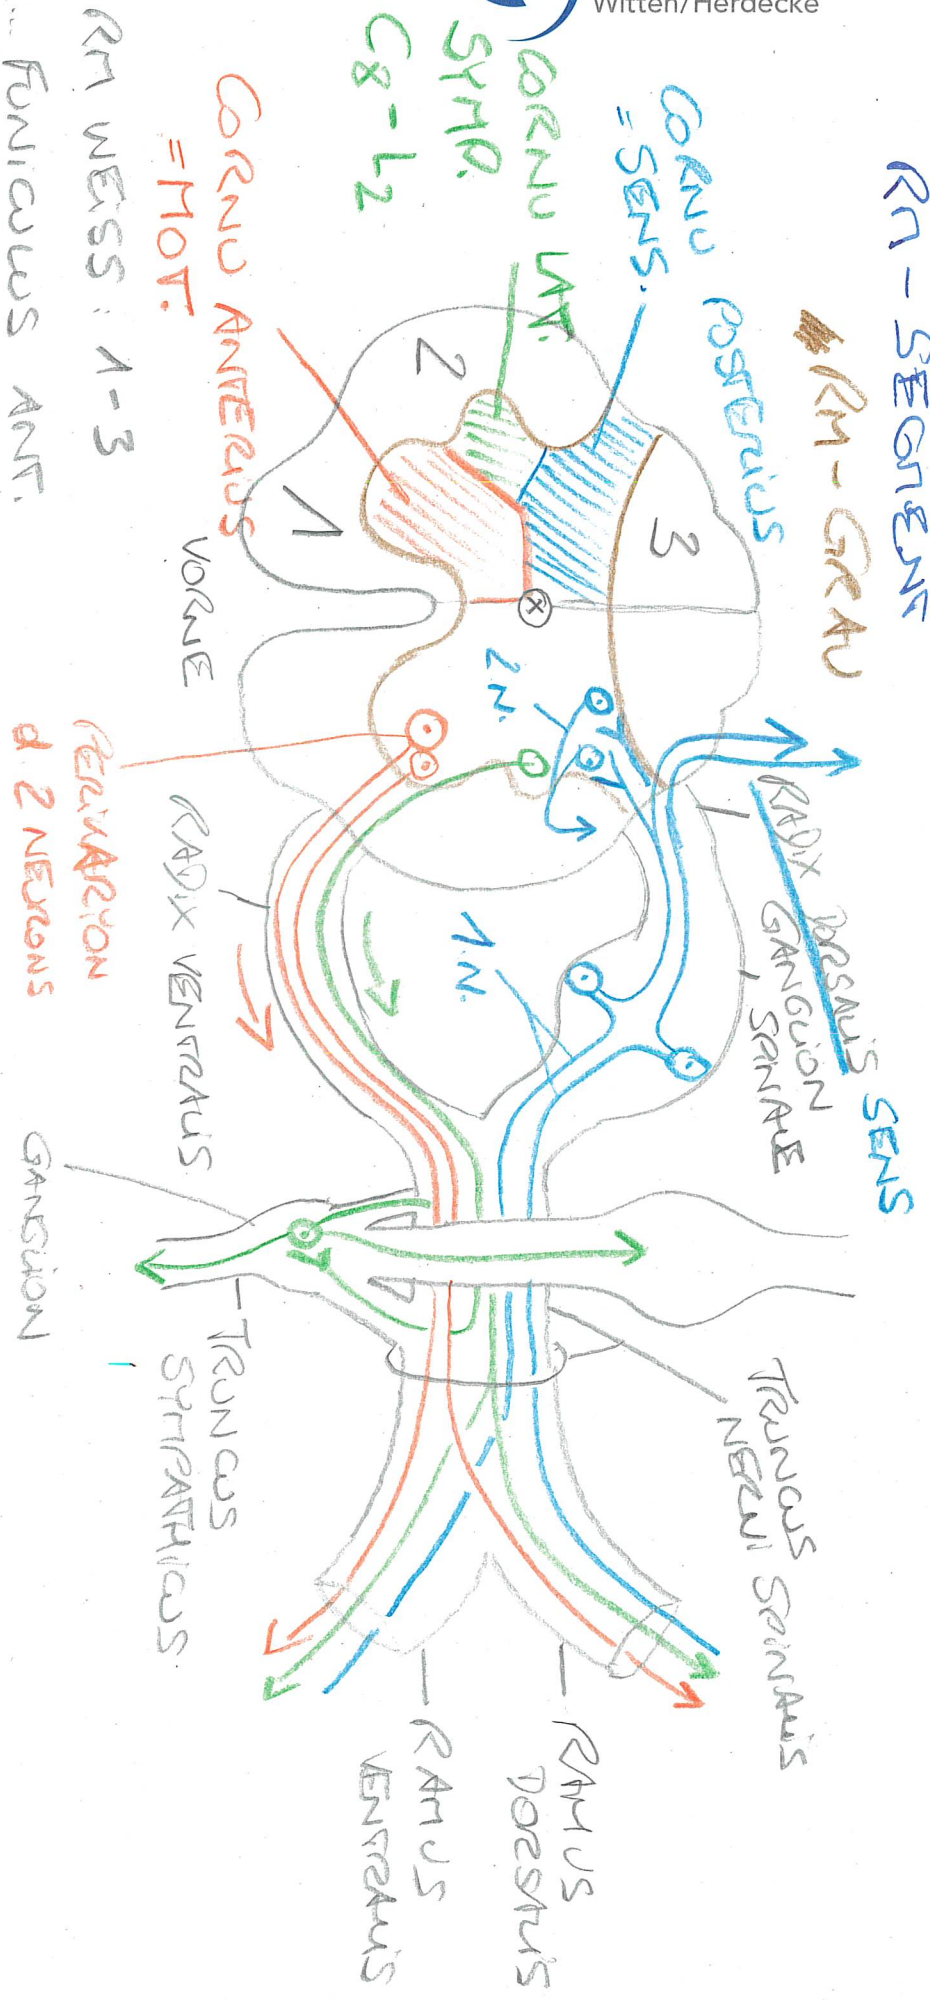 Witten/Herdecke
RM - SEGMENT
RM - GRAU
CORNU POSTERIUS
= SENS.
CORNU LAT.
SYMP.
C8 - L2
CORNU ANTERIUS
= MOT.
RM WEISS: 1-3
... FUNICULUS ANT.
1
2
3
X
VORNE
2 N.
1. N.
PERIKARYON
d. 2 NEURONS
RADIX VENTRALIS
RADIX DORSALIS
SENS
GANGLION
SPINALE
GANGLION
TRUNCUS
SYMPATHICUS
TRUNCUS
NERVI SPINALIS
RAMUS
DORSALIS
RAMUS
VENTRALIS